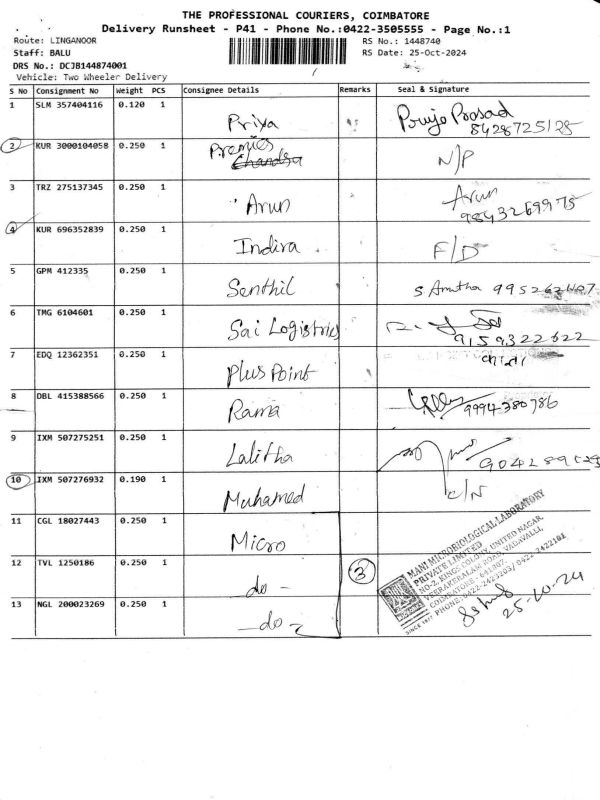 THE PROFESSIONAL COURIERS, COIMBATORE
Delivery Runsheet - P41 - Phone No.:0422-3505555 - Page No.:1
Route: LINGANOOR
RS No.: 1448740
Staff: BALU
RS Date: 25-Oct-2024
DRS No.: DCJB144874001
Vehicle: Two Wheeler Delivery
S No Consignment No Weight PCS Consignee Details Remarks Seal & Signature
1 SLM 357404116 0.120 1 Priya Pruja Prasad
8428725125
2 KUR 3000104058 0.250 1 Premies N/P
Chandra
3 TRZ 275137345 0.250 1 Arun Arun
9843269975
4 KUR 696352839 0.250 1 Indira F/D
5 GPM 412335 0.250 1 Senthil S Amutha
6 TMG 6104601 0.250 1 Sai Logistrics
9159322622
7 EDQ 12362351 0.250 1 Plus Point
8 DBL 415388566 0.250 1 Rama 9994380786
9 IXM 507275251 0.250 1 Lalitha
10 IXM 507276932 0.190 1 Muhamed C/N
11 CGL 18027443 0.250 1 Micro
12 TVL 1250186 0.250 1 do - 3
13 NGL 200023269 0.250 1 -do-
MANI MICROBIOLOGICAL LABORATORY
PRIVATE LIMITED
NO-2, KINGS COLONY, UNITED NAGAR,
VEERAKERALAM ROAD, VADAVALLI,
COIMBATORE - 641007
PHONE: 0422-2423203/ 0422-2422101
25-10-24